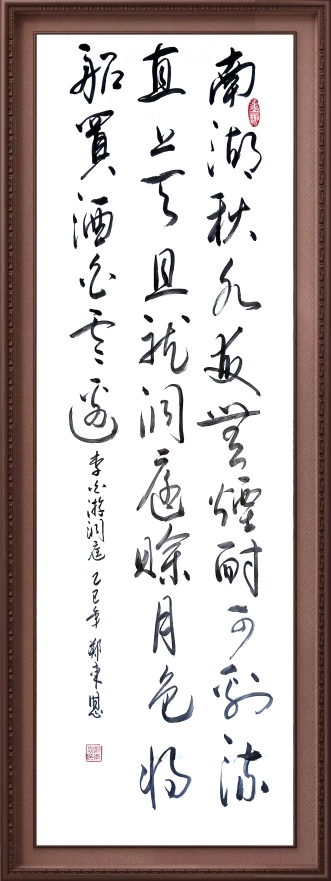 南湖秋水夜無煙耐可乘流
直上天且就洞庭賒月色將
船買酒白雲邊
李白游洞庭 乙巳年 鄭東恩